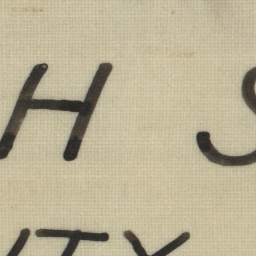 H S
ITY